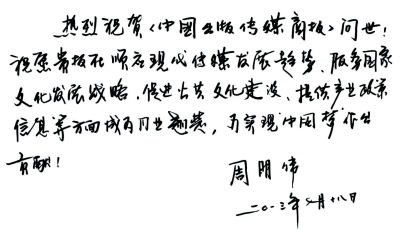 热烈祝贺《中国出版传媒商报》问世！
祝愿贵报在顺应现代传媒发展趋势、服务国家
文化发展战略、促进公共文化建设、提供产业政策
信息等方面成为同业翘楚，为实现中国梦作出
贡献！
周明伟
二〇一三年 月十八日